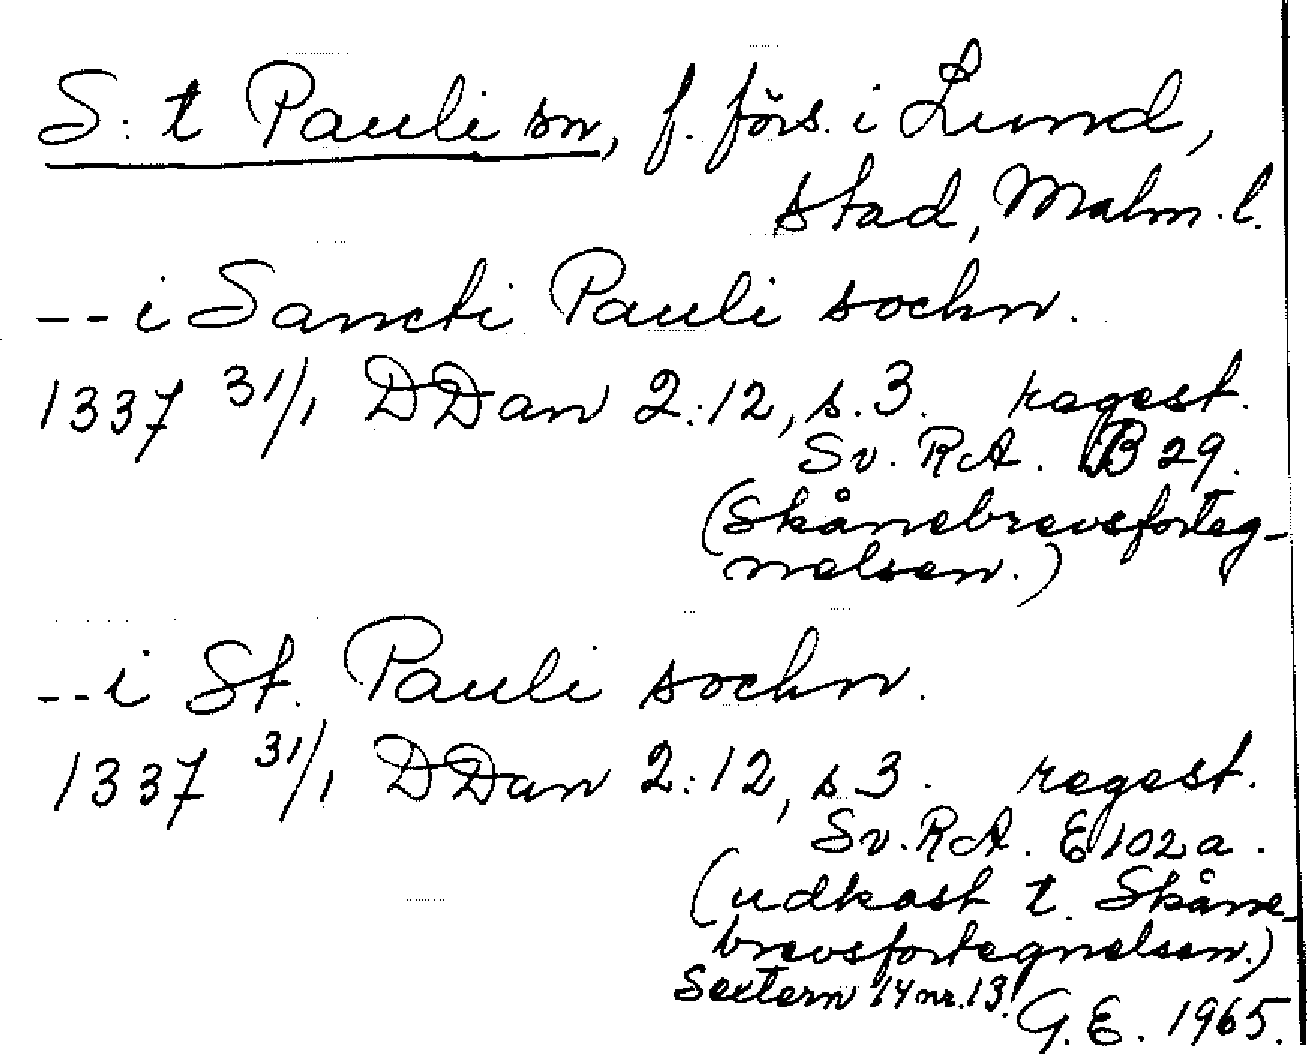 S:t Pauli sn, f. förs. i Lund,
stad, Malm. l.
-- i Sancti Pauli sochn.
1337 31/1 DDan 2:12, s. 3. regest.
Sv. RA. B 29.
(Skånebrevsforteg-
nelsen.)
-- i St. Pauli sochn.
1337 31/1 DDan 2:12, s 3. regest.
Sv. RA. E 102 a.
(udkast t. Skåne-
brevsfortegnelsen.)
Sextern 14 nr. 13.
G. E. 1965.